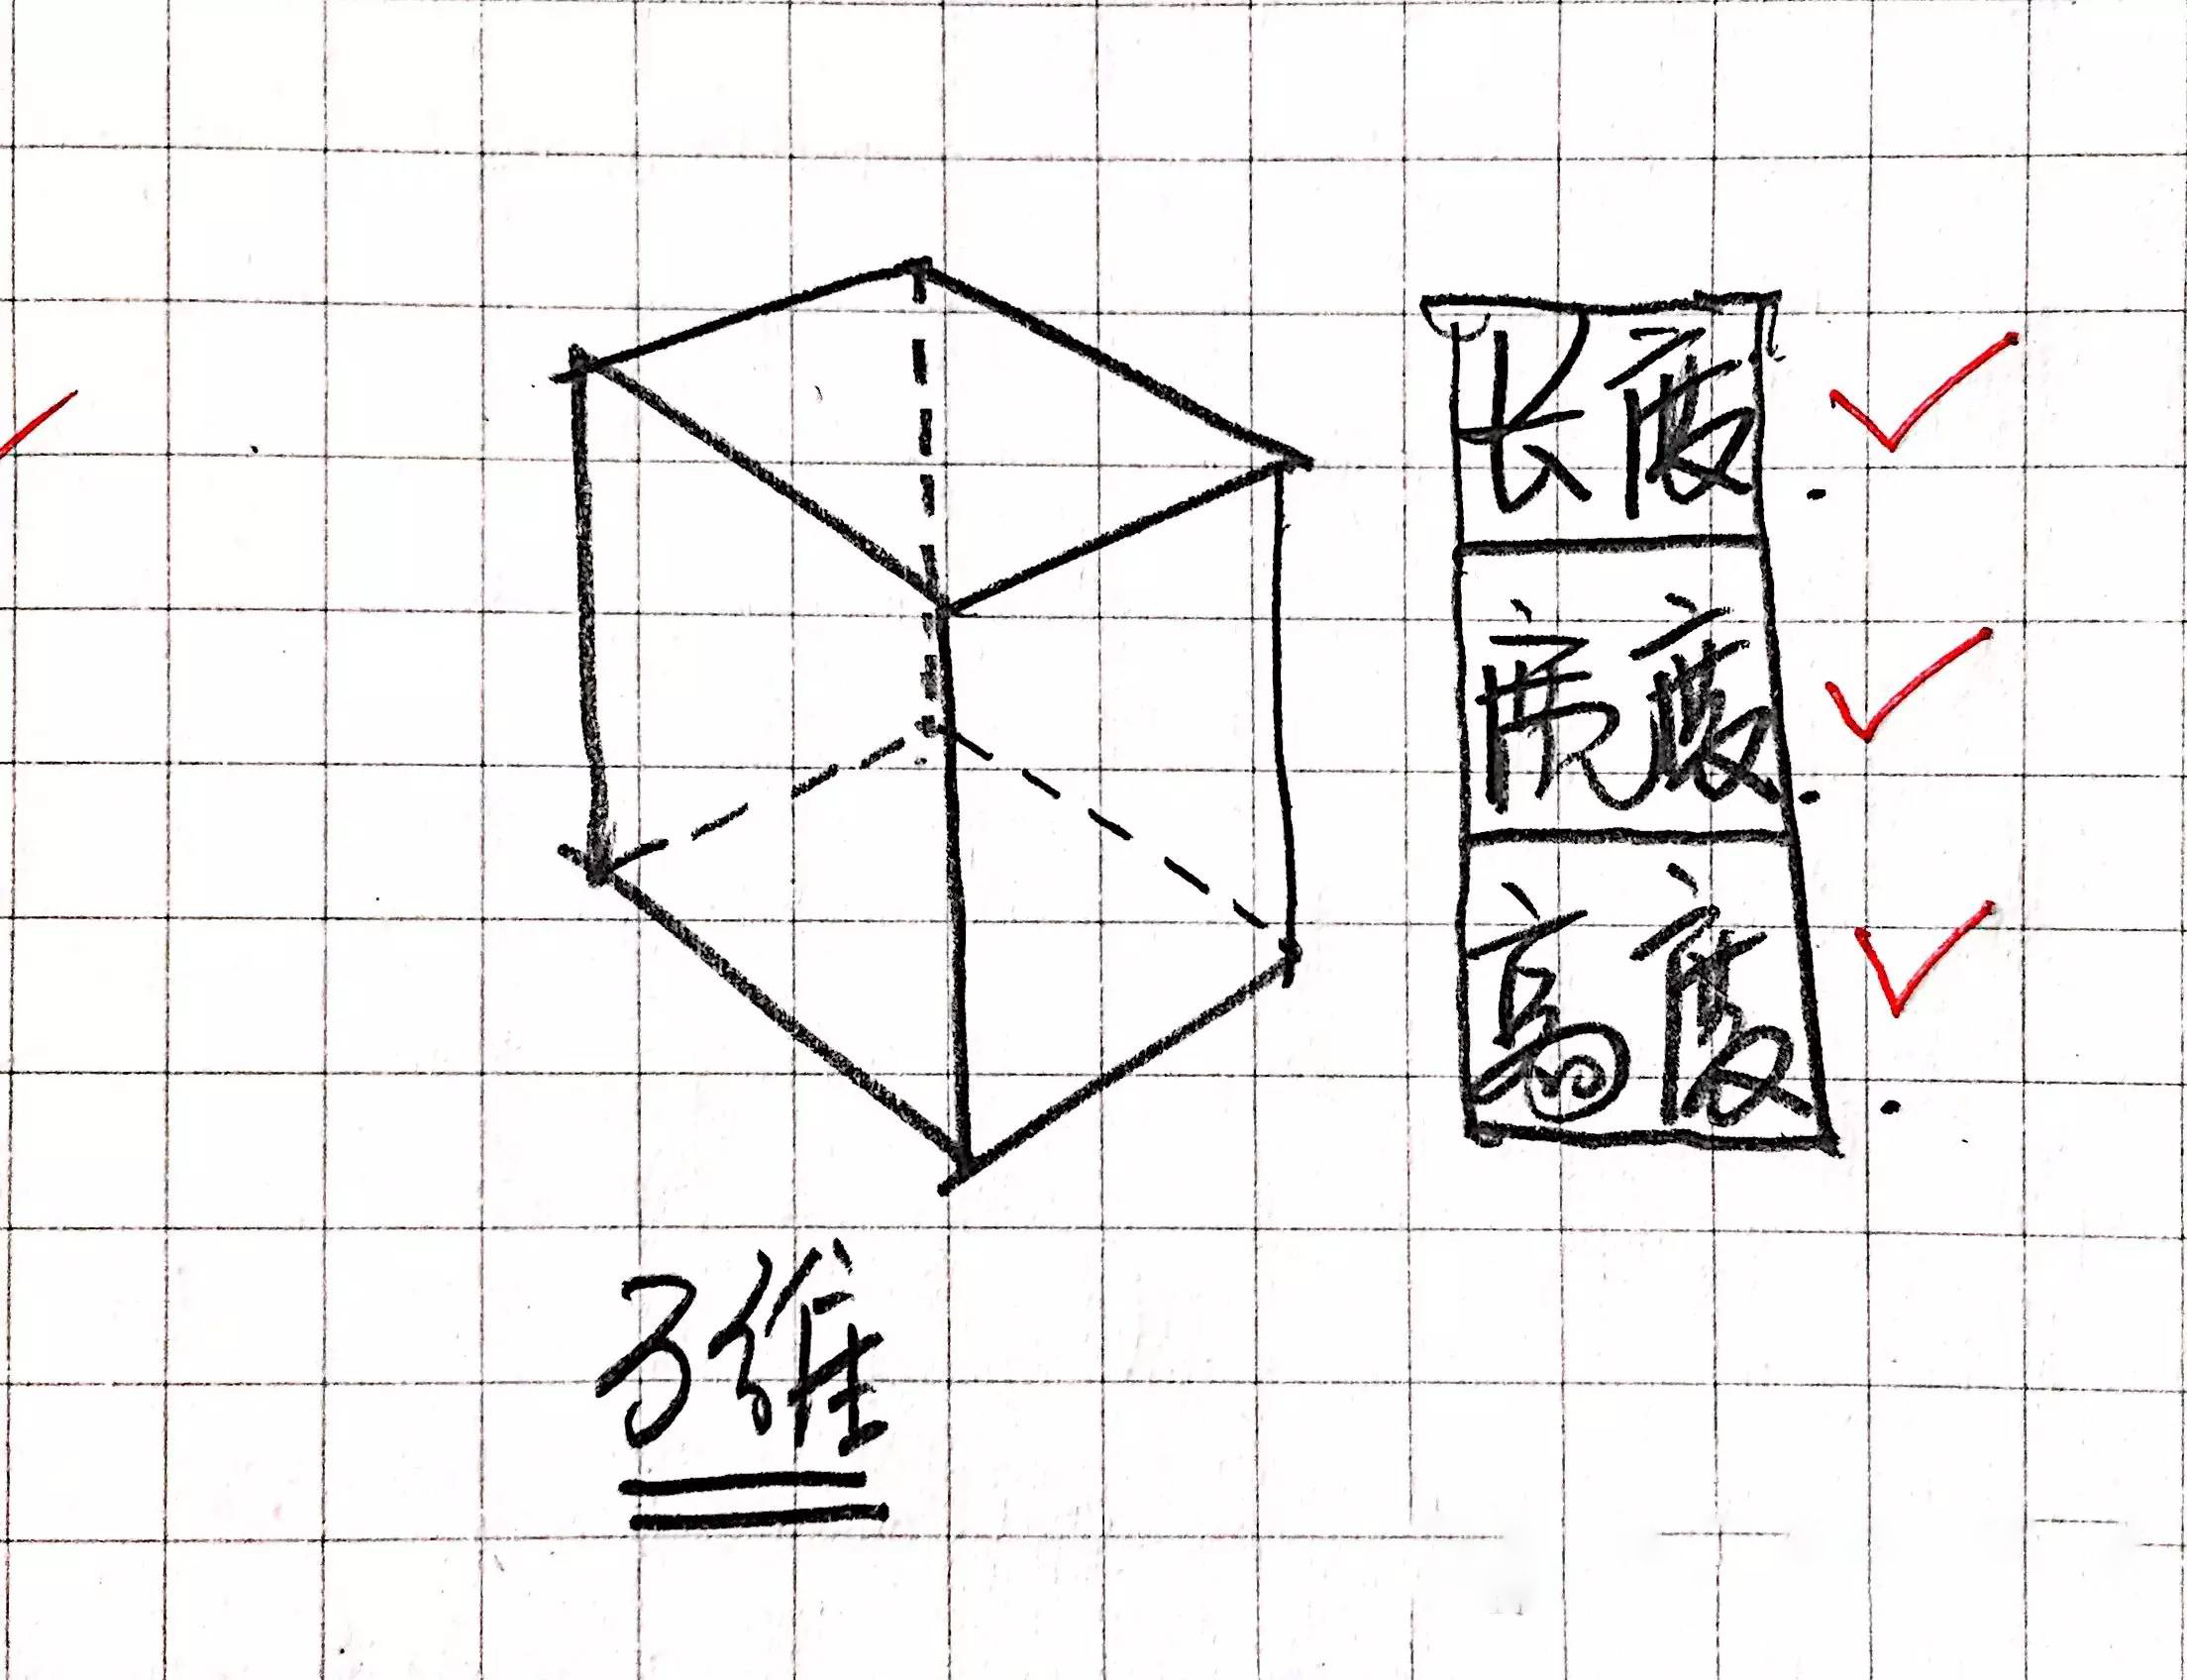 长度
宽度
高度
3维